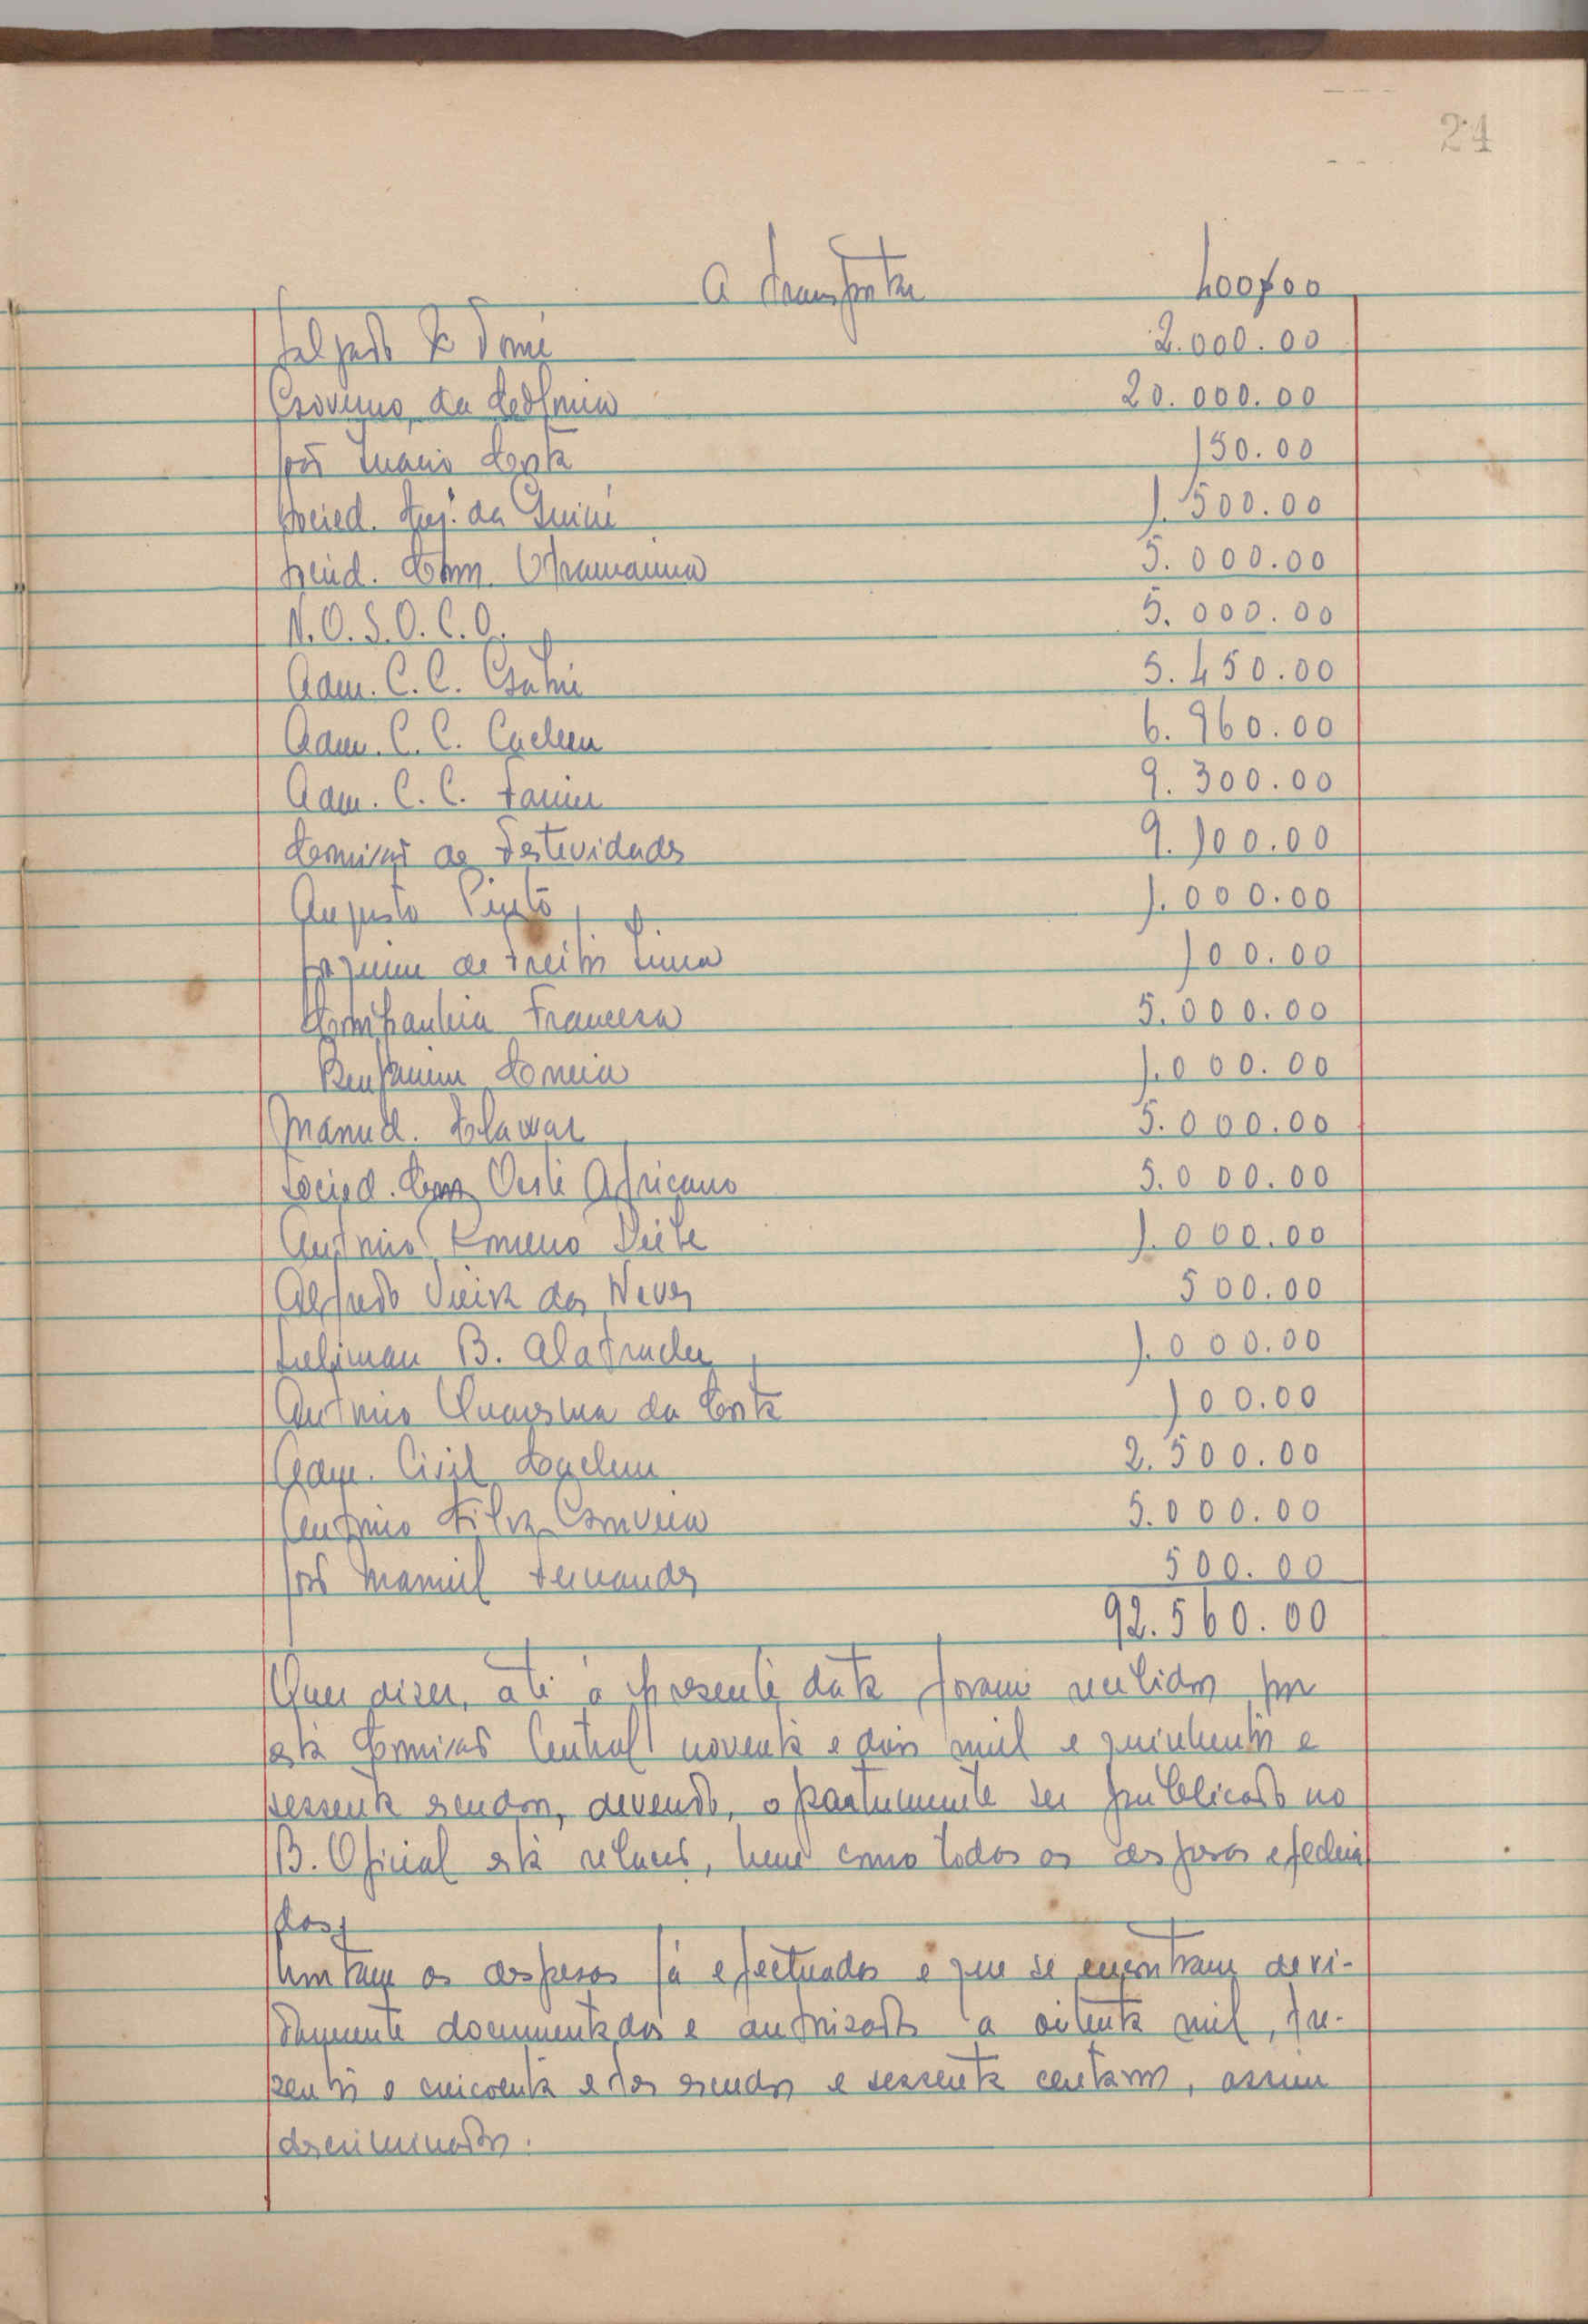 24
A transportar 400$00
Salgado & Tomé 2.000.00
Governo da Colónia 20.000.00
José Inácio Costa 150.00
Socied. Arj. da Guiné 1.500.00
Socied. Com. Ultramarina 5.000.00
N.O.S.O.C.O. 5.000.00
Adm. C.C. Gabú 5.450.00
Adm. C.C. Cacheu 6.960.00
Adm. C.C. Farim 9.300.00
Comissão de Festividades 9.100.00
Augusto Pinto 1.000.00
Joaquim de Freitas Lima 100.00
Companhia Francesa 5.000.00
Benjamim Correia 1.000.00
Manuel. Elawar 5.000.00
Socied. Com Oeste Africano 5.000.00
António Romeno Leite 1.000.00
Alfredo Vieira das Neves 500.00
Suliman B. 1.000.00
António Quaresma da Costa 100.00
Adm. Civil Cacheu 2.500.00
António Silva Gouveia 5.000.00
José Manuel Fernandes 500.00
92.560.00
Quer dizer, até à presente data foram recebidos por
esta Comissão Central noventa e dois mil e quinhentos e
sessenta escudos, devendo, oportunamente ser publicado no
B. Oficial esta relação, bem como todas as despesas efectua
das.
Montam as despesas já efectuadas e que se encontram devi-
damente documentadas e autorizadas a oitenta mil, tre-
zentos e cincoenta e dos escudos e sessenta centavos, assim
descriminados.